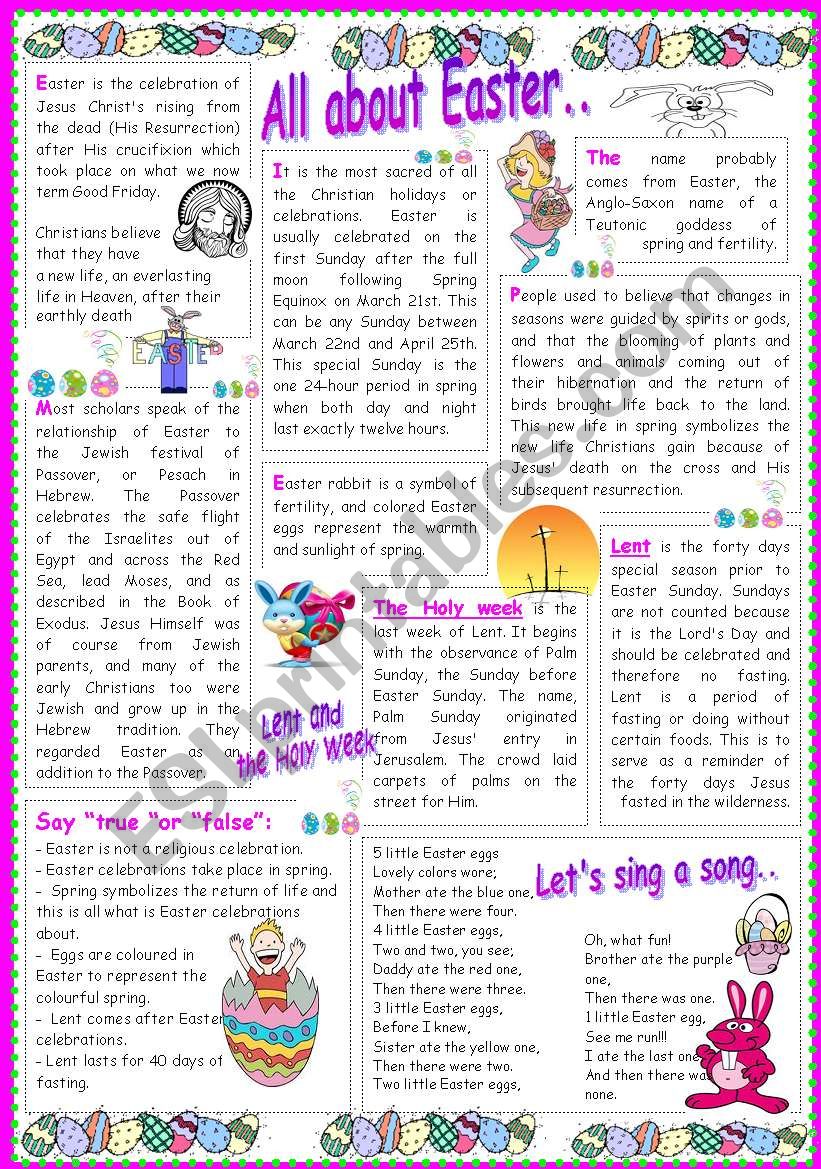 All about Easter..
Easter is the celebration of
Jesus Christ's rising from
the dead (His Resurrection)
after His crucifixion which
took place on what we now
term Good Friday.
Christians believe
that they have
a new life, an everlasting
life in Heaven, after their
earthly death
It is the most sacred of all
the Christian holidays or
celebrations. Easter is
usually celebrated on the
first Sunday after the full
moon following Spring
Equinox on March 21st. This
can be any Sunday between
March 22nd and April 25th.
This special Sunday is the
one 24-hour period in spring
when both day and night
last exactly twelve hours.
The name probably
comes from Easter, the
Anglo-Saxon name of a
Teutonic goddess of
spring and fertility.
People used to believe that changes in
seasons were guided by spirits or gods,
and that the blooming of plants and
flowers and animals coming out of
their hibernation and the return of
birds brought life back to the land.
This new life in spring symbolizes the
new life Christians gain because of
Jesus' death on the cross and His
subsequent resurrection.
EASTER
Most scholars speak of the
relationship of Easter to
the Jewish festival of
Passover, or Pesach in
Hebrew. The Passover
celebrates the safe flight
of the Israelites out of
Egypt and across the Red
Sea, lead Moses, and as
described in the Book of
Exodus. Jesus Himself was
of course from Jewish
parents, and many of the
early Christians too were
Jewish and grow up in the
Hebrew tradition. They
regarded Easter as an
addition to the Passover.
Easter rabbit is a symbol of
fertility, and colored Easter
eggs represent the warmth
and sunlight of spring.
Lent and
the Holy week
The Holy week is the
last week of Lent. It begins
with the observance of Palm
Sunday, the Sunday before
Easter Sunday. The name,
Palm Sunday originated
from Jesus' entry in
Jerusalem. The crowd laid
carpets of palms on the
street for Him.
Lent is the forty days
special season prior to
Easter Sunday. Sundays
are not counted because
it is the Lord's Day and
should be celebrated and
therefore no fasting.
Lent is a period of
fasting or doing without
certain foods. This is to
serve as a reminder of
the forty days Jesus
fasted in the wilderness.
Say “true “or “false”:
- Easter is not a religious celebration.
- Easter celebrations take place in spring.
- Spring symbolizes the return of life and
this is all what is Easter celebrations
about.
- Eggs are coloured in
Easter to represent the
colourful spring.
- Lent comes after Easter
celebrations.
- Lent lasts for 40 days of
fasting.
Let's sing a song..
5 little Easter eggs
Lovely colors wore;
Mother ate the blue one,
Then there were four.
4 little Easter eggs,
Two and two, you see;
Daddy ate the red one,
Then there were three.
3 little Easter eggs,
Before I knew,
Sister ate the yellow one,
Then there were two.
Two little Easter eggs,
Oh, what fun!
Brother ate the purple
one,
Then there was one.
1 little Easter egg,
See me run!!!
I ate the last one
And then there was
none.
ESLprintables.com